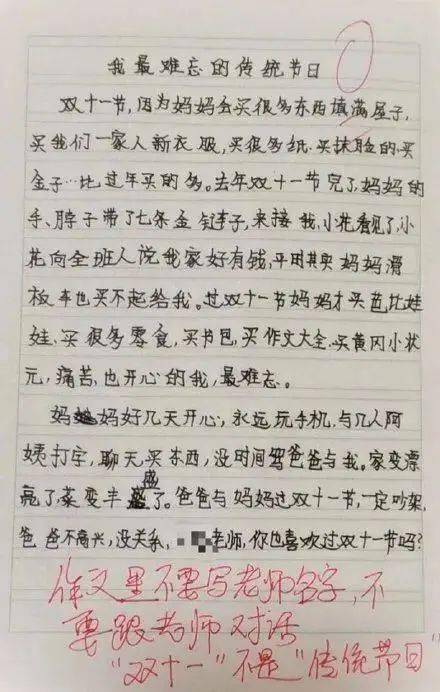 我最难忘的传统节日
双十一节,因为妈妈会买很多东西填满屋子,
买我们一家人新衣服,买很多纸.买抹脸的.买
金子…比过年买的多。去年双十一节完了,妈妈的
手、脖子带了七条金链子,来接我,小花看见了,小
花向全班人说我家好有钱,平田其实妈妈滑
板车也买不起给我。过双十一节妈妈才买芭比娃
娃、买很多零食,买书包,买作文大全、买黄冈小状
元,痛苦,也开心的我,最难忘。
妈妈好几天开心,永远玩手机,与几人阿
姨打字,聊天,买东西,没时间骂爸爸与我。家变漂
亮了,菜变丰盛了。爸爸与妈妈过双十一节,一定吵架,
爸爸不高兴,没关系,老师,你也喜欢过双十一节吗?
作文里不要写老师名字,不
要跟老师对话
“双十一”不是“传统节日”